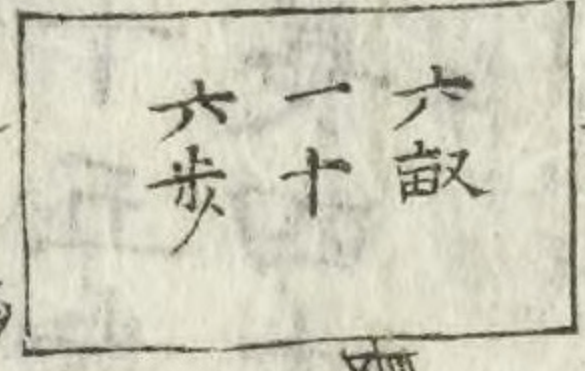 六畝
一十
六步